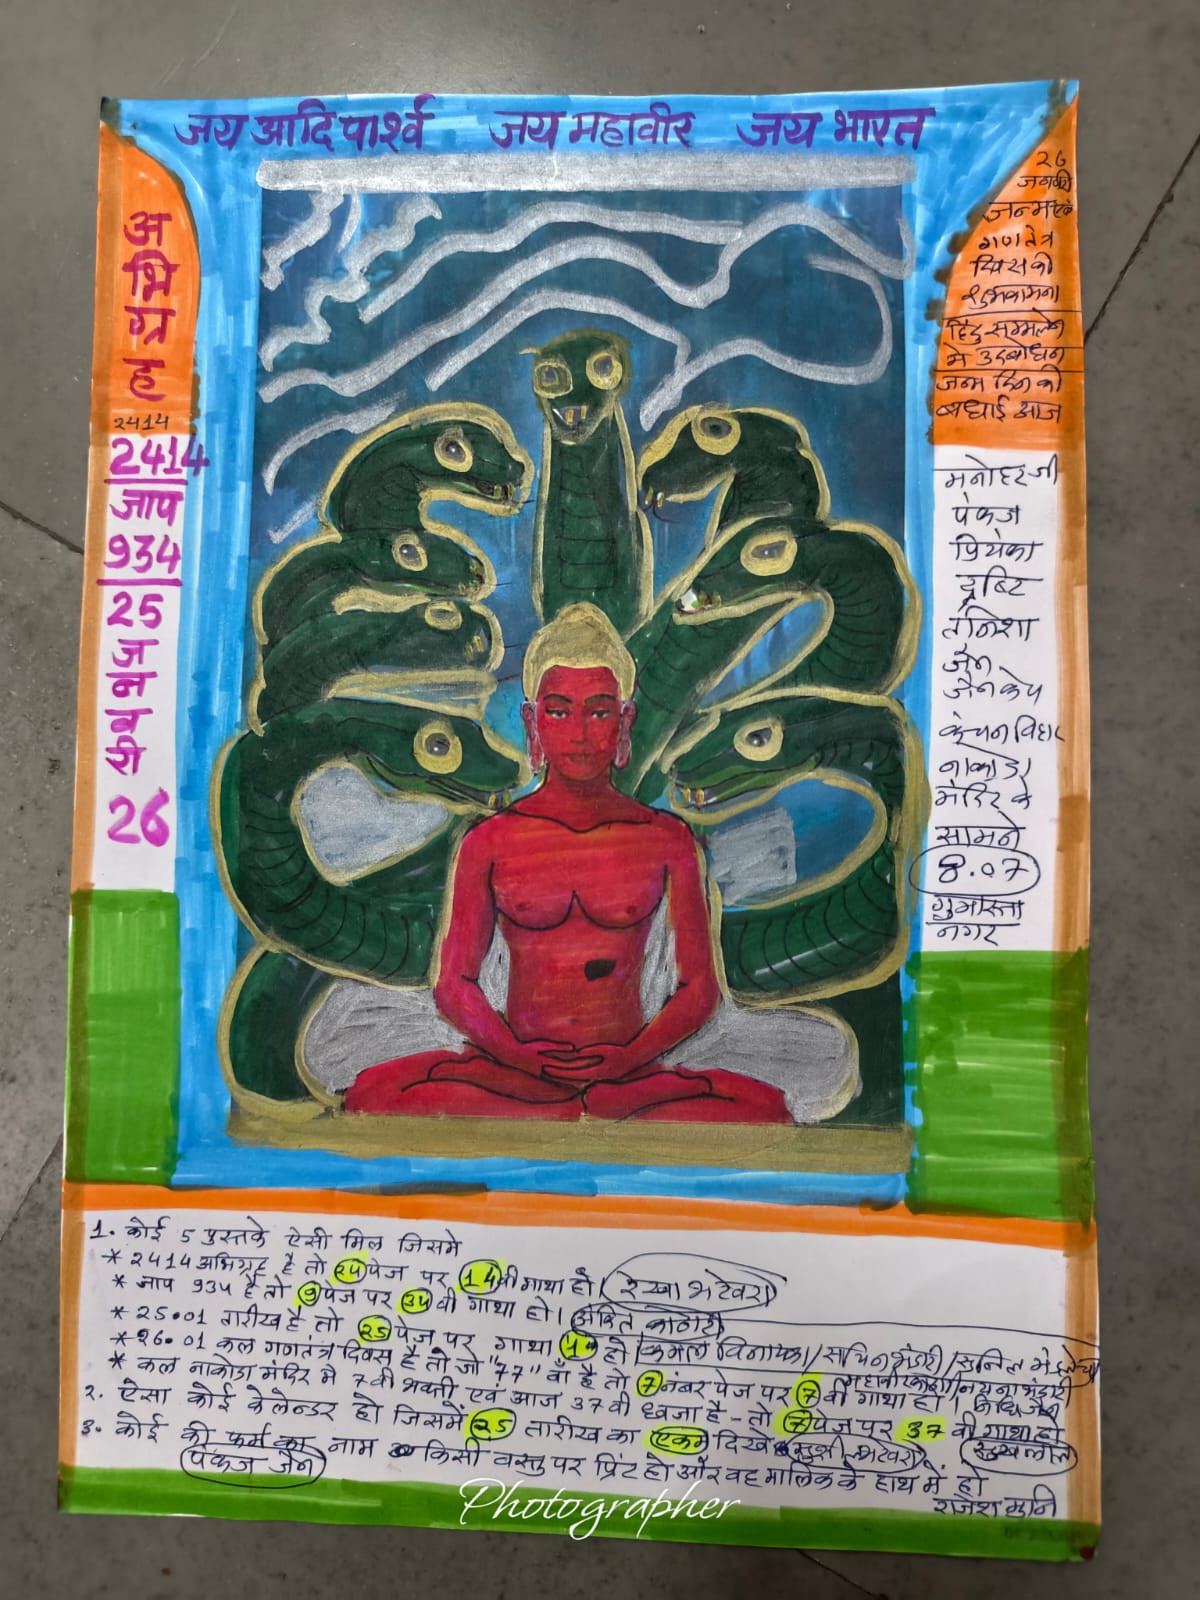 जय आदि पार्श्व जय महावीर जय भारत
अभिग्रह
2414
2414
जाप
934
25
जनवरी
26
26
जनवरी
जन्म एवं
गणतंत्र
दिवस की
शुभकामना
हिंदु सम्मलेन
मे उदबोधन
जन्म दिन की
बधाई आज
मनोहर जी
पंकज
प्रियंका
द्रबिट
तनिशा
जैन
जैन केप
कंचन विहार
नाकोडा
मंदिर के
सामने
8.07
गुमास्ता
नगर
1. कोई 5 पुस्तके ऐसी मिल जिसमे
* 2414 अभिग्रह है तो 24 पेज पर 14 वी गाथा हो। रेखा भटेवरा
* जाप 934 है तो 9 पेज पर 34 वी गाथा हो। अंकित कोठारी
* 25.01 तारीख है तो 25 पेज पर गाथा 1 हो कमल विनायका / सचिन भंडारी / सुनिल
* 26.01 कल गणतंत्र दिवस है तो जो "77" वाँ है तो 7 नंबर पेज पर 7 वी गाथा हो।
* कल नाकोडा मंदिर मे 7 वी भक्ती एवं आज 37 वी ध्वजा है - तो 7 पेज पर 37 वी गाथा हो
2. ऐसा कोई केलेन्डर हो जिसमें 25 तारीख का एकम दिखे
3. कोई की फर्म का नाम किसी वस्तु पर प्रिंट हो और वह मालिक के हाथ में हो
पंकज जैन
राजेश मुनि
Photographer